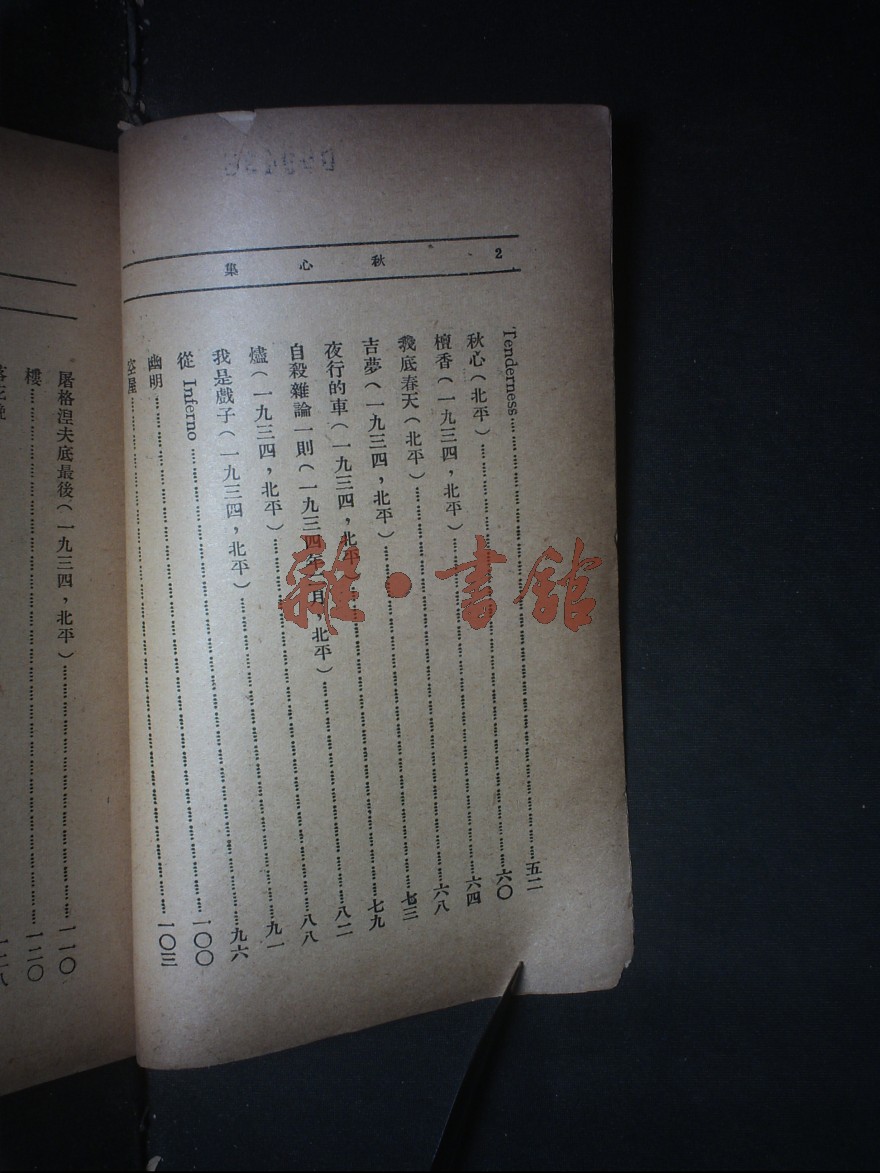 2 秋心集
Tenderness……五二
秋心(北平)……六〇
檀香(一九三四,北平)……六四
我底春天(北平)……六八
吉夢(一九三四,北平)……七三
夜行的車(一九三四,北平)……七九
自殺雜論一則(一九三四年 月,北平)……八二
燼(一九三四,北平)……八八
我是戲子(一九三四,北平)……九一
從 Inferno……九六
幽明……一〇〇
空屋……一〇三
屠格涅夫底最後(一九三四,北平)……一一〇
樓……一二〇
一二八
雜·書館